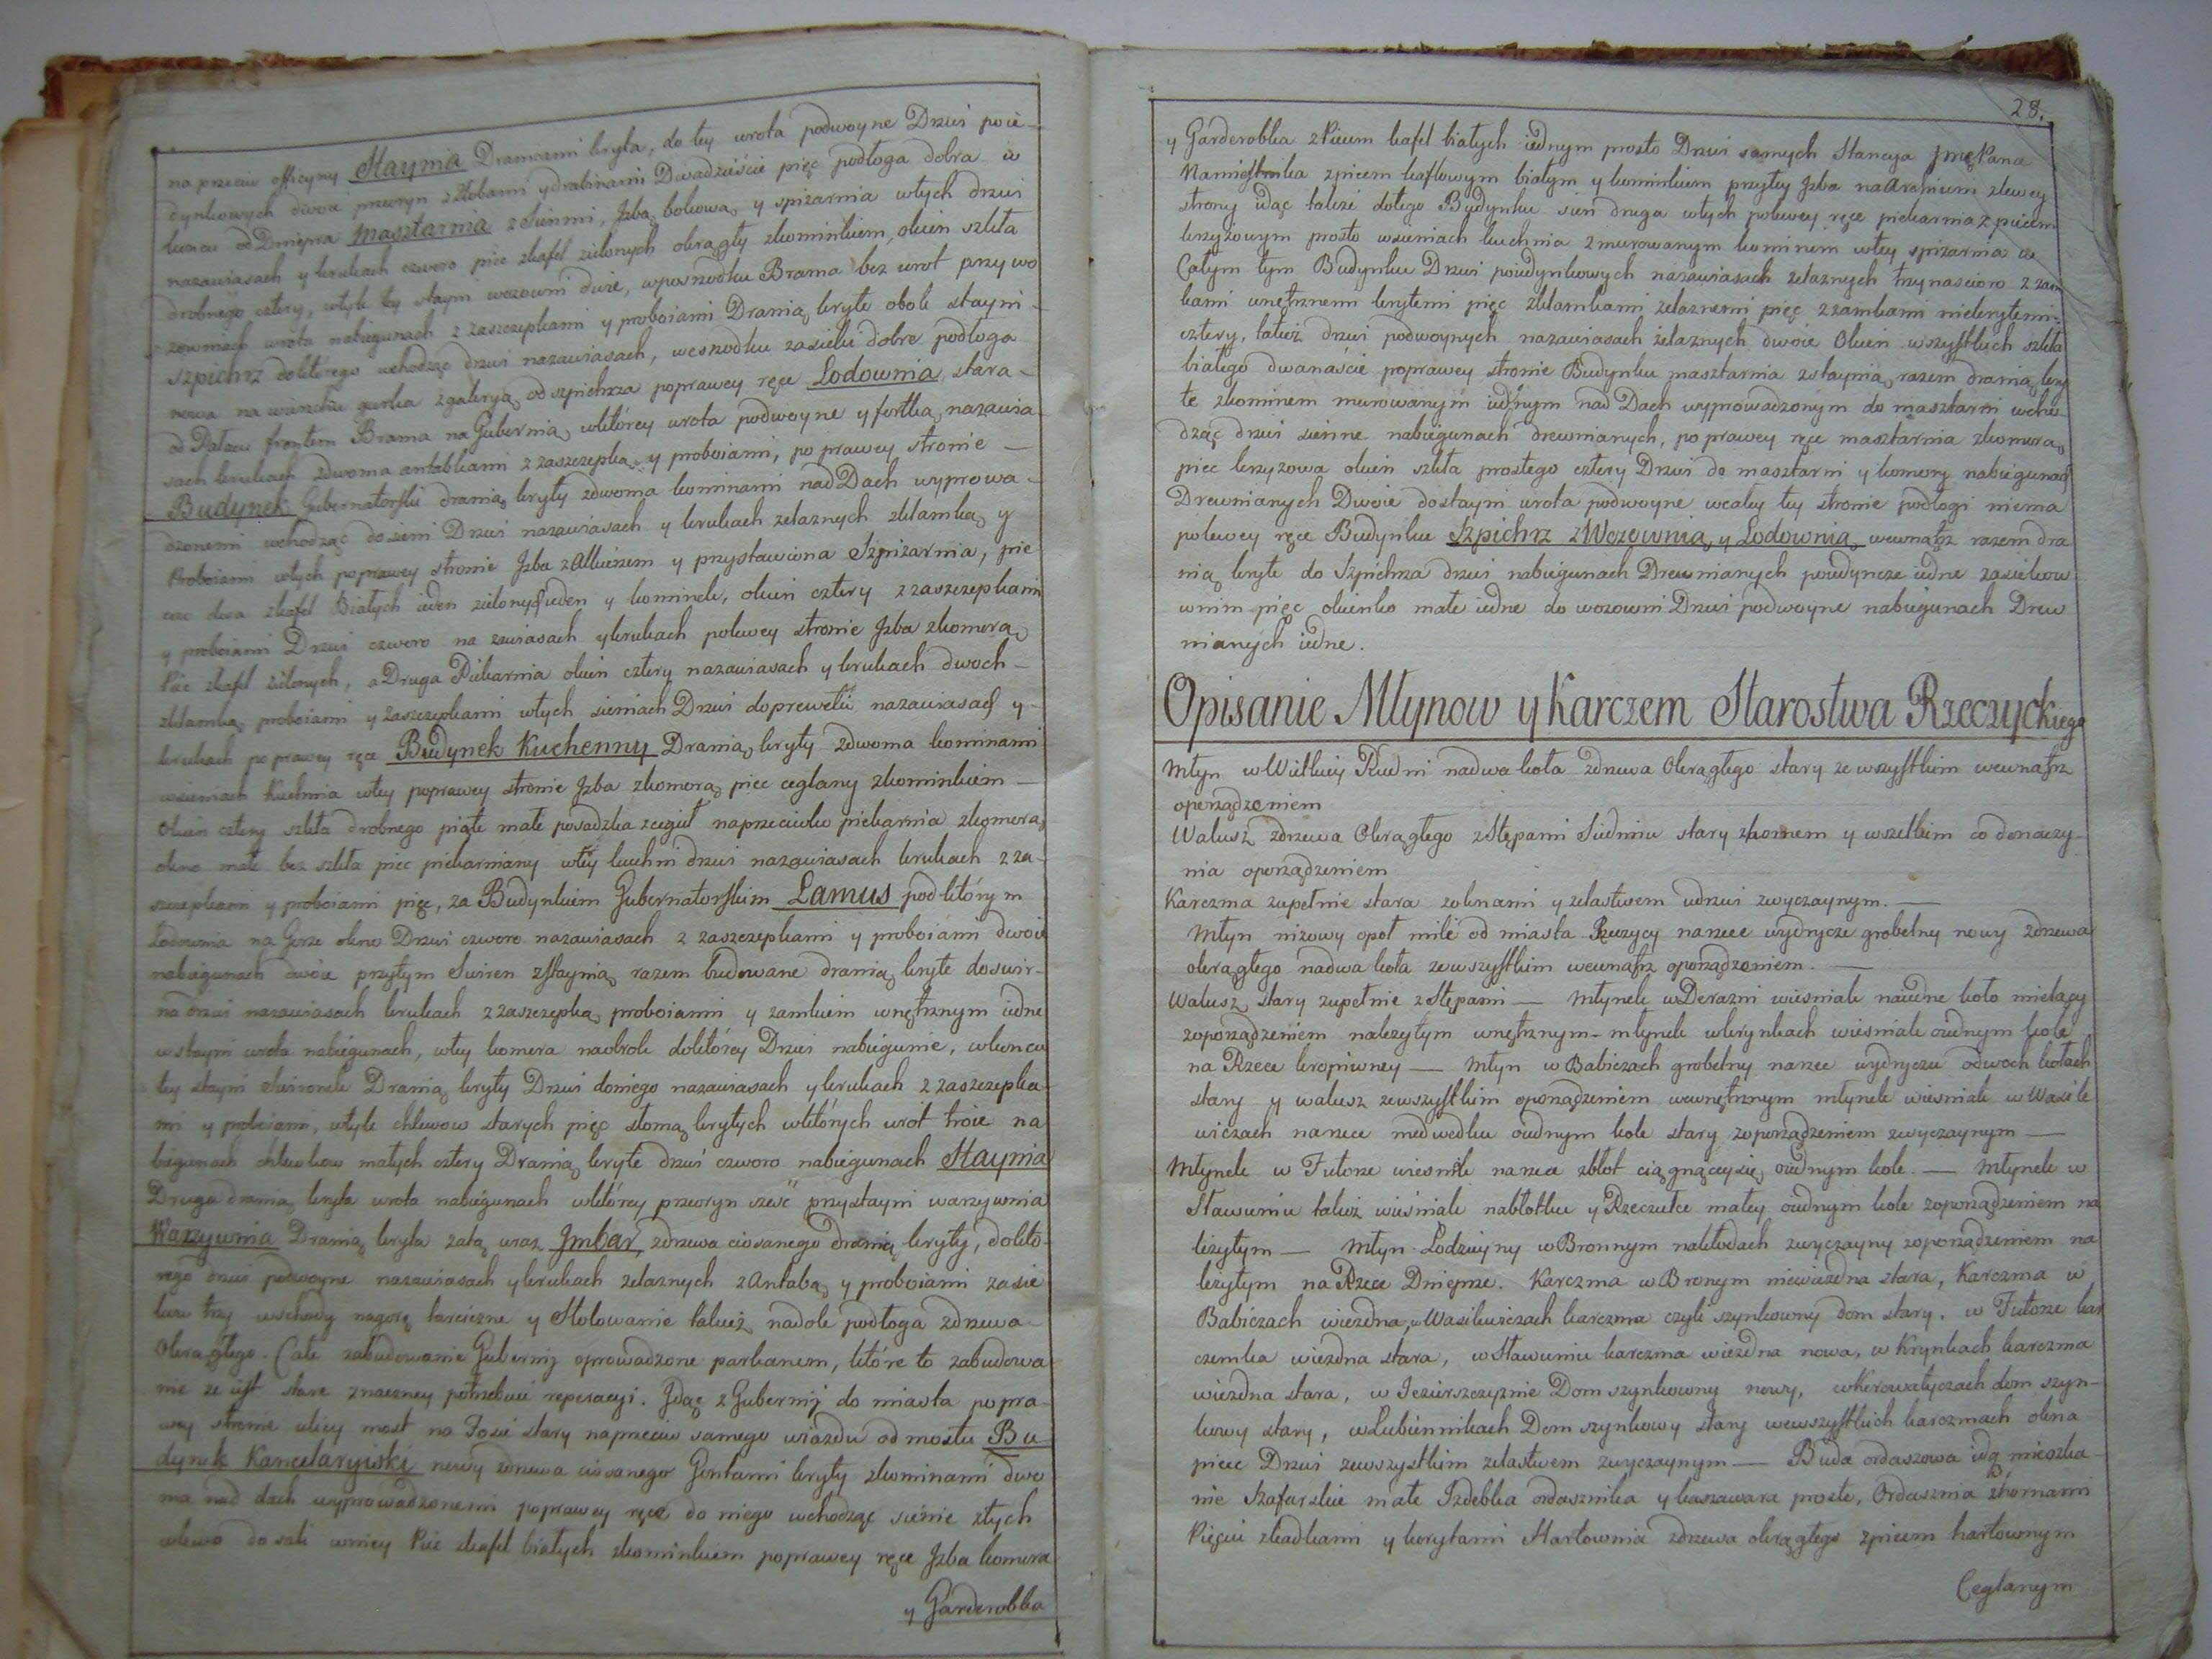 na przeciw officyny Staynia Dranicami kryta, do tey wrota podwoyne Drzwi poie-
dynkowych dwoie przeryn zżłobami y drabinami Dwadzieście pięć podłoga dobra w
końcu od Dniepra Masztarnia z Sienmi, Jzbą bokową y spiżarnia wtych drzwi
nazawiasach y krukach czworo piec zkafel zielonych okrągły zkominkiem, okien szkła
drobnego cztery, wtyle tey stayni wozowni dwie, wposrzodku Brama bez wrot przy wo
zowniach wrota nabiegunach z zaszczepkami y proboiami Dranią kryte obok stayni-
Szpichrz doktórego wchodząc drzwi nazawiasach, weszrodku zasieki dobre podłoga
nowa na wierzchu gurka zgaleryą od szpichrza poprawey ręce Lodownia stara-
od Pałacu frontem Brama na Gubernią, wktórey wrota podwoyne y fortką nazawia
sach krukach zdwoma antabkami z zaszczepką y proboiami, po prawey stronie -
Budynek Gubernatorski dranią kryty zdwoma kominami nad Dach wyprowa-
dzonemi wchodząc dosieni Drzwi nazawiasach y krukach zelaznych zklamką y
Proboiami wtych poprawey stronie Jzba zAlkierzem y przystawiona Szpizarnia, pie
ce dwa zkafel Białych ieden zielonych ieden y kominek, okien cztery z zaszczepkami
y proboiami Drzwi czworo na zawiasach y krukach polewey stronie Jzba zkomorą
Piec zkafel zielonych, a Druga Piekarnia okien cztery nazawiasach y krukach dwoch-
zklamką proboiami y zaszczepkami wtych sieniach Drzwi doprewetu nazawiasach y-
krukach poprawey ręce Budynek Kuchenny Dranią kryty zdwoma kominami
wsieniach Kuchnia wtey poprawey stronie Jzba zkomorą piec ceglany zkominkiem -
Okien cztery szkła drobnego piąte małe posadzka zcegieł naprzeciwko piekarnia zkomorą
okno małe bez szkła piec piekarniany wtey kuchni drzwi nazawiasach krukach z za-
szczepkami y proboiami pięć, za Budynkiem Gubernatorskim Lamus pod którym
Lodownia na Gorze okno Drzwi czworo nazawiasach z zaszczepkami y proboiami dwoie
nabiegunach dwoie przytym Swiren zStaynią razem budowane dranią kryte doswir-
na drzwi nazawiasach krukach z zaszczepką proboiami y zamkiem wnętrznym iedne
wstayni wrota nabiegunach, wtey komora naobrok doktórey Drzwi nabiegunie, wkoncu
tey stayni Swironek Dranią kryty Drzwi doniego nazawiasach y krukach z zaszczepka-
mi y proboiami, wtyle chlewow starych pięć słomą krytych wktórych wrot troie na
biegunach chlewkow małych cztery Dranią kryte drzwi czworo nabiegunach Staynia
Druga dranią kryta wrota nabiegunach wktórey przeryn sześć przystayni warzywnia
Warzywnia Dranią kryta zatą wraz Jmbar zdrzewa ciosanego dranią kryty, dokto-
rego drzwi podwoyne nazawiasach y krukach zelaznych zAntabą y proboiami zasie
kow trzy wschody nagorę tarciczne y Stolowanie takież, nadole podłoga zdrzewa-
Okrągłego. Całe zabudowanie Gubernij oprowadzone parkanem, które to zabudowa
nie ze iest stare znaczney potrzebuie reperacyi. Jdąc z Gubernij do miasta popra-
wey stronie ulicy most na Fosie stary naprzeciw samego wiazdu od mostu Bu
dynek Kancelaryiski nowy zdrzewa ciosanego Gontami kryty zkominami dwo
ma nad dach wyprowadzonemi poprawey ręce do niego wchodząc sienie ztych
wlewo do sali wniey Piec zkafel białych zkominkiem poprawey ręce Jzba komora
y Garderobka
28.
y Garderobka zPiecem kafel białych iednym prosto Drzwi samych Stancya JmęPana
Namiestnika zpiecem kaflowym białym y kominkiem przytey Jzba naArchiwum zlewey
strony idąc także dotego Budynku sień druga wtych polewey ręce piekarnia z piecem
krzyżowym prosto wsieniach kuchnia zmurowanym kominem wtey spiżarnia w
Całym tym Budynku Drzwi poiedynkowych nazawiasach zelaznych trzynascioro z zam
kami wnętrznemi krytemi pięć zklamkami zelaznemi pięć z zamkami niekrytemi-
cztery, także drzwi podwoynych nazawiasach żelaznych dwoie Okien wszystkich szkła
białego dwanaście poprawey stronie Budynku masztarnia zstaynią razem dranią kry
te zkominem murowanym iednym nad Dach wyprowadzonym do masztarni wcho-
dząc drzwi sienne nabiegunach drewnianych, po prawey ręce masztarnia zkomorą
piec krzyzowa okien szkła prostego cztery Drzwi do masztarni y komory nabiegunach
Drewnianych Dwoie dostayni wrota podwoyne wcałey tey stronie podłogi niema
polewey ręce Budynku Szpichrz zWozownią y Lodownią wewnątrz razem dra
nią kryte do Szpichrza drzwi nabiegunach Drewnianych poiedyncze iedne zasiekow
wnim pięć okienko małe iedne do wozowni Drzwi podwoyne nabiegunach Drew
nianych iedne.
Opisanie Młynow y Karczem Starostwa Rzeczyckiego
Młyn w Wielkiey Rudni nadwa koła zdrzewa Okrągłego stary ze wszystkim wewnątrz
oporządzeniem
Walusz zdrzewa Okrągłego zStępami Siedmiu stary zkomem y wszelkim co donaczy-
nia oporządzeniem
Karczma zupełnie stara zoknami y zelastwem udrzwi zwyczaynym. —
Młyn nizowy opoł mile od miasta Rzeczycy narzece wydrycze grobelny nowy zdrzewa
okrągłego nadwa koła zewszystkim wewnątrz oporządzeniem. —
Walusz stary zupełnie zStępami — Młynek wDerazni wiesniak naiedne koło mielący
zoporządzeniem należytym wnętrznym - młynek wkrynkach wiesniak oiednym kole
na Rzece kropiwney — Młyn w Babiczach grobelny narzece wydrycze odwoch kołach
stary y walusz zewszystkim oporządzeniem wewnętrznym młynek wiesniak w Wasile
wiczach narzece medwedku oiednym kole stary zoporządzeniem zwyczaynym —
Młynek w Futorze wiesniak narzece zbłot ciągnącey się, oiednym kole — Młynek w
Sławuniu takież wieśniak nabłotku y Rzeczułce małey oiednym kole zoporządzeniem na
leżytym — Młyn Łodzieyny w Bronnym nakłodach zwyczayny zoporządzeniem na
leżytym na Rzece Dnieprze. Karczma w Bronym niewiezdna stara, Karczma w
Babiczach wiezdna, w Wasilewiczach karczma czyli szynkowny dom stary, w Futorze kar
czemka wiezdna stara, w Sławuniu karczma wiezdna nowa, w Krynkach karczma
wiezdna stara, w Jezierszczyznie Dom szynkowny nowy, wKorowatyczach dom szyn-
kowy stary, wLubiennikach Dom szynkowy stary wewszystkich karczmach okna
piece Drzwi zewszystkim zelastwem zwyczaynym — Buda ordaszowa idą mieszka-
nie Szafarskie małe Jzdebka ordasznika y kaszawara proste, Ordasznia zkomami
Pięciu zkadkami y korytami Hartownia zdrzewa okrągłego zpiecem hartownym
Ceglanym